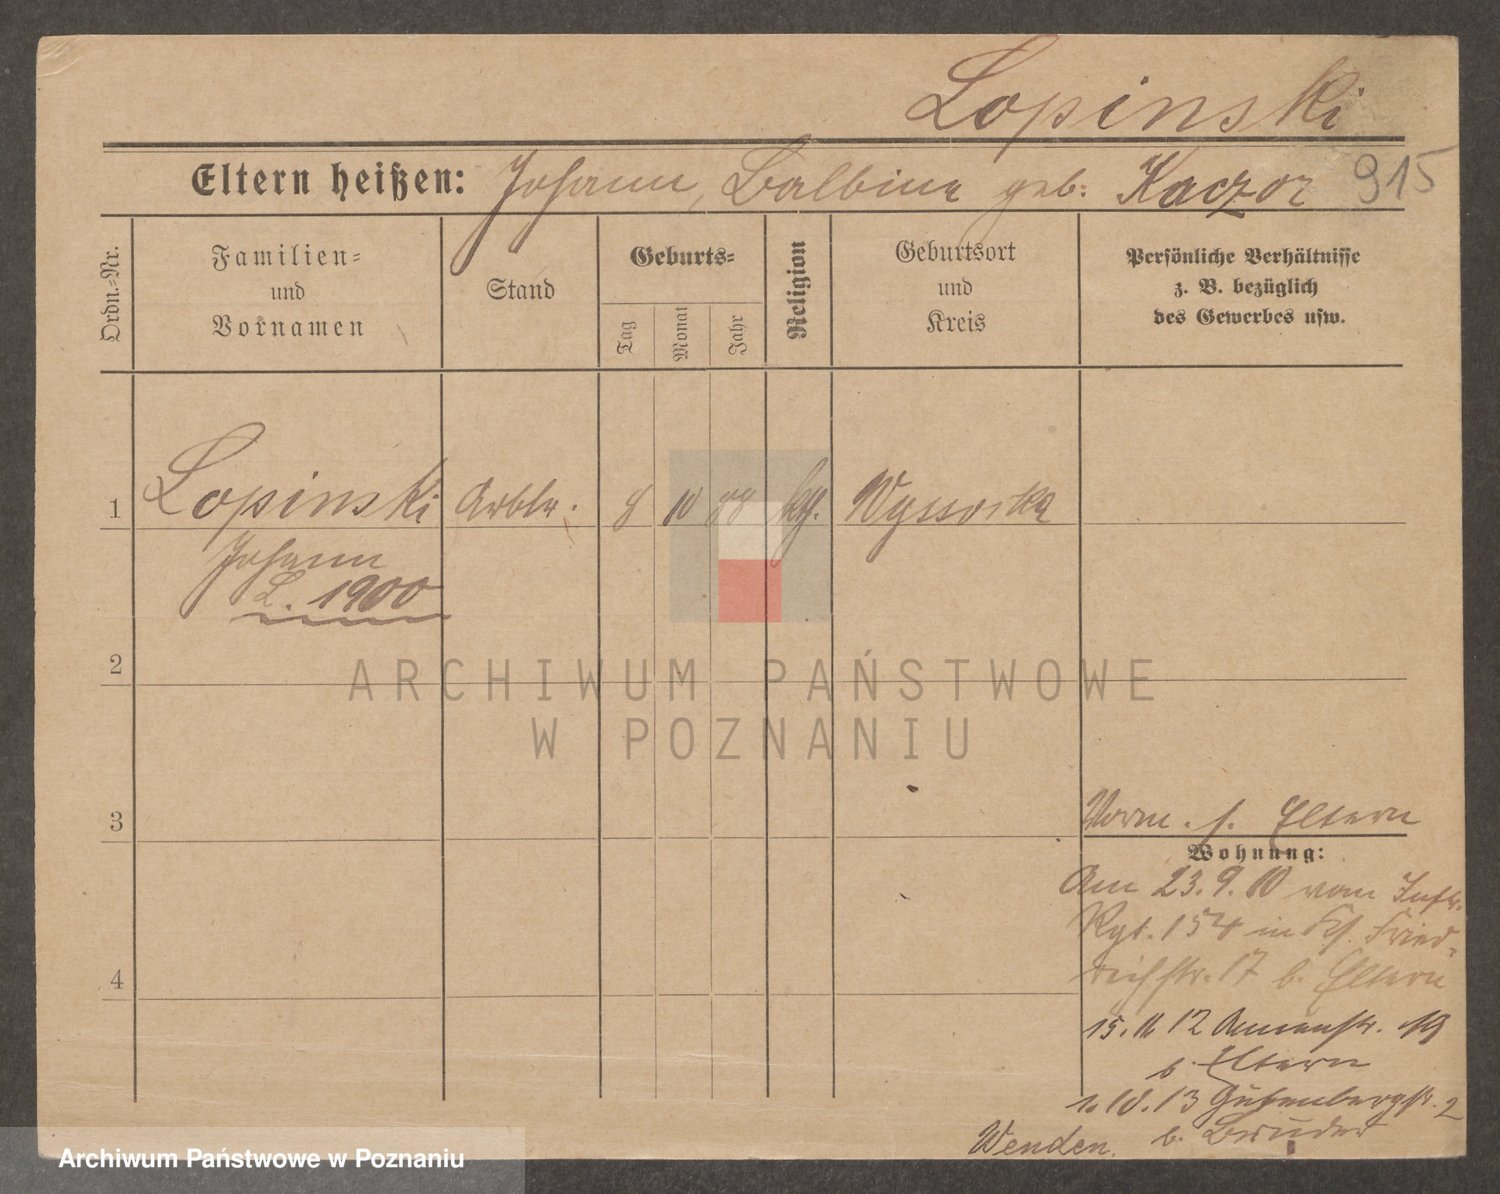 Lopinski
Eltern heißen: Johann, Balbina geb: Kaczor 915
Ordn.-Nr.
Familien-
und
Vornamen
Stand
Geburts-
Tag
Monat
Jahr
Religion
Geburtsort
und
Kreis
Persönliche Verhältnisse
z. B. bezüglich
des Gewerbes usw.
1 Lopinski Arbtr. 8 10 88 kg. Wyssocka
Johann
L. 1900
2
ARCHIWUM PAŃSTWOWE
W POZNANIU
3
Vorm. s. Eltern
Wohnung:
Am 23.9.10 vom Inftr.
Rgt. 154 in Fried-
richstr. 17 b. Eltern
4
15.11 12 Annenstr. 19
b. Eltern
1.10.13 Gutenbergstr. 2
b. Bruder
Wenden.
Archiwum Państwowe w Poznaniu